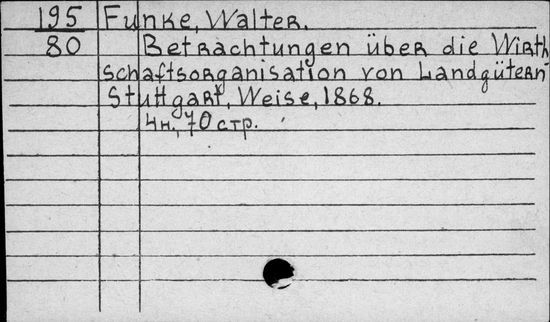 195 Funke, Walter.
80 Betrachtungen über die Wirth
schaftsorganisation von Landgütern
Stuttgart, Weise, 1868.
4н., 70 стр.